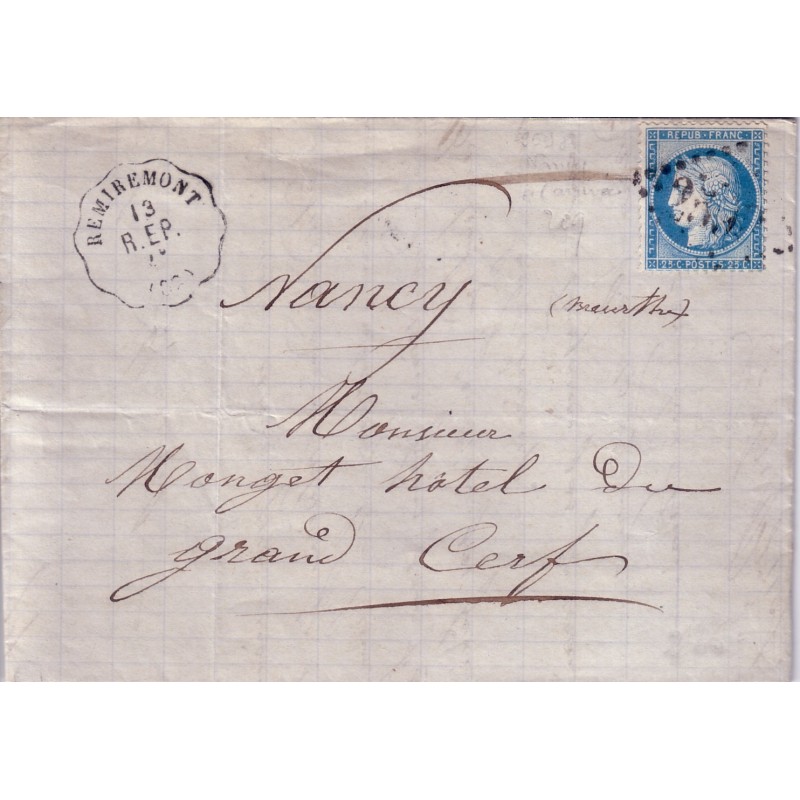 REPUB·FRANC
25·C·POSTES·25·C
REMIREMONT
13
R.EP.
Nancy (Meurthe)
Monsieur
Monget hôtel du
grand Cerf